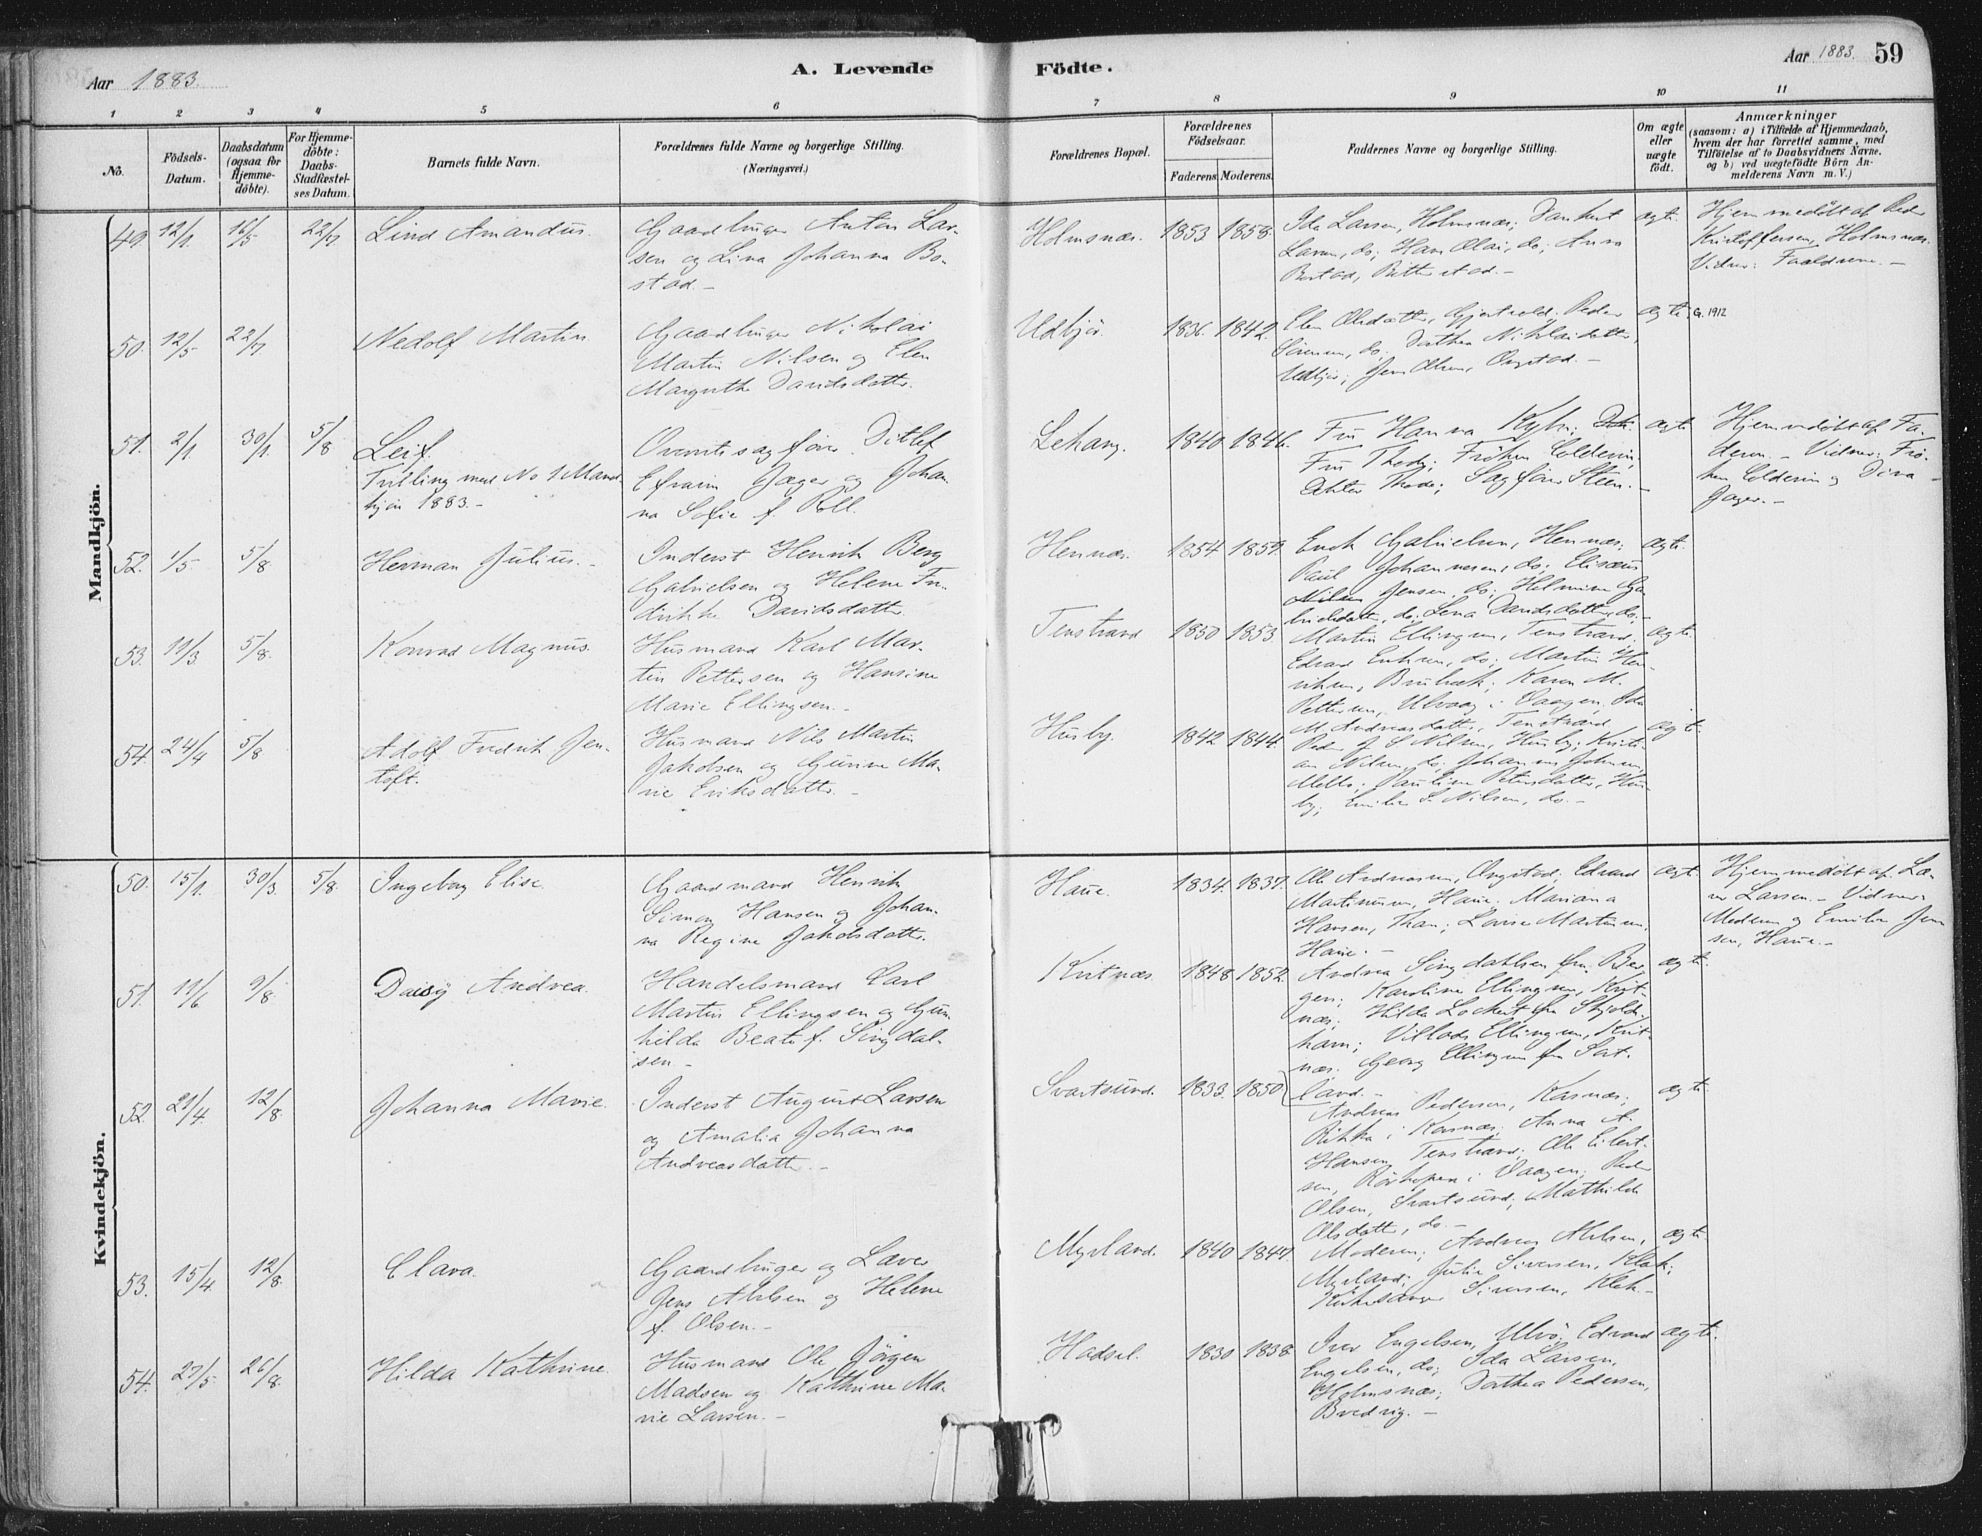 Aar 1883.
A. Levende Födte.
Aar 1883. 59
1 2 3 4 5 6 7 8 9 10 11
No.
Födsels-
Datum.
Daabsdatum
(ogsaa for
Hjemme-
döbte).
For Hjemme-
döbte:
Daabs-
Stadfæstel-
ses Datum.
Barnets fulde Navn.
Forældrenes fulde Navne og borgerlige Stilling.
(Næringsvei.)
Forældrenes Bopæl.
Forældrenes
Födselsaar.
Faderens. Moderens.
Faddernes Navne og borgerlige Stilling.
Om ægte
eller
uægte
födt.
Anmærkninger
(saasom: a) i Tilfælde af Hjemmedaab,
hvem der har forrettet samme, med
Tilföielse af to Daabsvidners Navne,
og b) ved uægtefödte Börn An-
melderens Navn m. V.)
Mandkjön.
49. 12/1 16/5 22/7 Lind Amandus.
Gaardbruger Anton Lar-
sen og Lina Johanna Bo-
stad.-
Holmsnæs. 1853 1858.
Ida Larsen, Holmsnæs; Dankert
Larsen, do; Hans Olai, do; Anna
Bostad,
ægte.
Hjemmedöbt af Peder
Kristoffersen, Holmsnæs.
Vidner: Forældrene.-
50. 12/5 22/7 Nedolf Martin
Gaardbruger Nikolai
Martin Nilsen og Elen
Margrethe Davidsdatter.
Udbjör. 1836. 1842.
Elen Olsdatter, Peder
do; Dorthea Nikolaidatter,
Udbjör; Jens Olsen, Ongstad.-
ægte. G. 1912
51. 2/1 30/1. 5/8 Leif.
Trilling med No 1 Mand
kjön 1883.-
Overretssagförer Ditlef
Efraim Jæger og Johan
na Sofie f. Roll.
Lekang. 1840. 1846.
Fru Hanna
Fru Thode; Fröken Coldevin;
Thode; Sagförer Steen.-
ægte.
Hjemmedöbt af Fa-
deren.- Vidner: Frö-
ken Coldevin og Diva
Jæger.-
52. 1/5 5/8 Herman Julius.-
Inderst Henrik Berg
Gabrielsen og Helene Fre-
drikke Davidsdatter.
Hennæs. 1854 1859.
Gabrielsen, Hennæs;
Paul Johannesen, do; Elisæus
Jensen, do; Helmine Ga-
brielsdatter, do; Lena Davidsdatter, do.
ægte.
53. 19/3 5/8. Konrad Magnus.
Husmand Karl Mar-
tin Pettersen og Hansine
Marie Ellingsen.-
Tenstrand 1850 1853.
Martin Ellingsen, Tenstrand;
Edvard Eriksen, do; Martin Hen-
riksen, Karen M.
Pettersen, Ulvaag i Vaagen; Ida
M. Andreasdatter, Tenstrand
ægte.
54. 24/4 5/8 Adolf Fredrik Jen-
toft.
Husmand Nils Martin
Jakobsen og Gurine Ma-
rie Eriksdatter.-
Husby. 1842 1844.
Peder S Nilsen, Husby; Kristi-
an Nilsen, do; Johannes Johnsen,
Melbo; Pauline Petersdatter, Hus-
by; Emilie S. Nilsen, do.-
ægte.
Kvindekjön.
50. 15/1. 30/3. 5/8. Ingeborg Elise.
Gaardmand Henrik
Simon Hansen og Johan-
na Regine Jakobsdatter.
Haue. 1834. 1837.
Ole Andreasen, Ongstad; Edvard
Martinusen, Haue; Mariana
Hansen, Than; Lovise Martinusen,
Haue.-
ægte.
Hjemmedöbt af Læ-
rer Larsen.- Vidner:
Moderen og Emilie Jen
sen, Haue.-
51. 19/6 9/8. Daisy Andrea.
Handelsmand Carl
Martin Ellingsen og Gun-
hilda Beate f. Singdal-
sen.-
Kvitnæs. 1848. 1852.
Andrea Singdahlsen fra Ber-
gen; Karoline Ellingsen, Kvit-
næs; Hilda Lockert fra Skjold-
ham; Villads Ellingsen, Kvit-
næs. Georg Ellingsen fra Sort-
land.-
ægte.
52. 21/4. 12/8. Johanna Marie.
Inderst August Larsen
og Amalia Johanna
Andreasdatter.-
Svartsund. 1833. 1850
Andreas Pedersen, Kasnæs;
Rikka i Kasnæs; Anna A.
Hansen, Tenstrand; Ole Eilert-
sen, Rörhopen i Vaagen; Peder
Olsen, Svartsund; Mathilde
Olsdatter, do.-
ægte.
53. 15/4. 12/8. Clara.
Gaardbruger og Lærer
Jens Ahlsen og Helene
f. Olsen.-
Myrland. 1840 1847.
Moderen; Andreas Ahlsen,
Myrland; Julie Siversen, Klak;
Kirkesanger Siversen, Klak.-
ægte.
54. 27/5 26/8. Hilda Kathrine.
Husmand Ole Jörgen
Madsen og Kathrine Ma-
rie Larsen.-
Hadsel. 1830 1838.
Iver Engelsen, Ulvö; Edvard
Engelsen, do; Ida Larsen,
Holmsnæs; Dorthea Pedersen,
Bredvig.-
ægte.